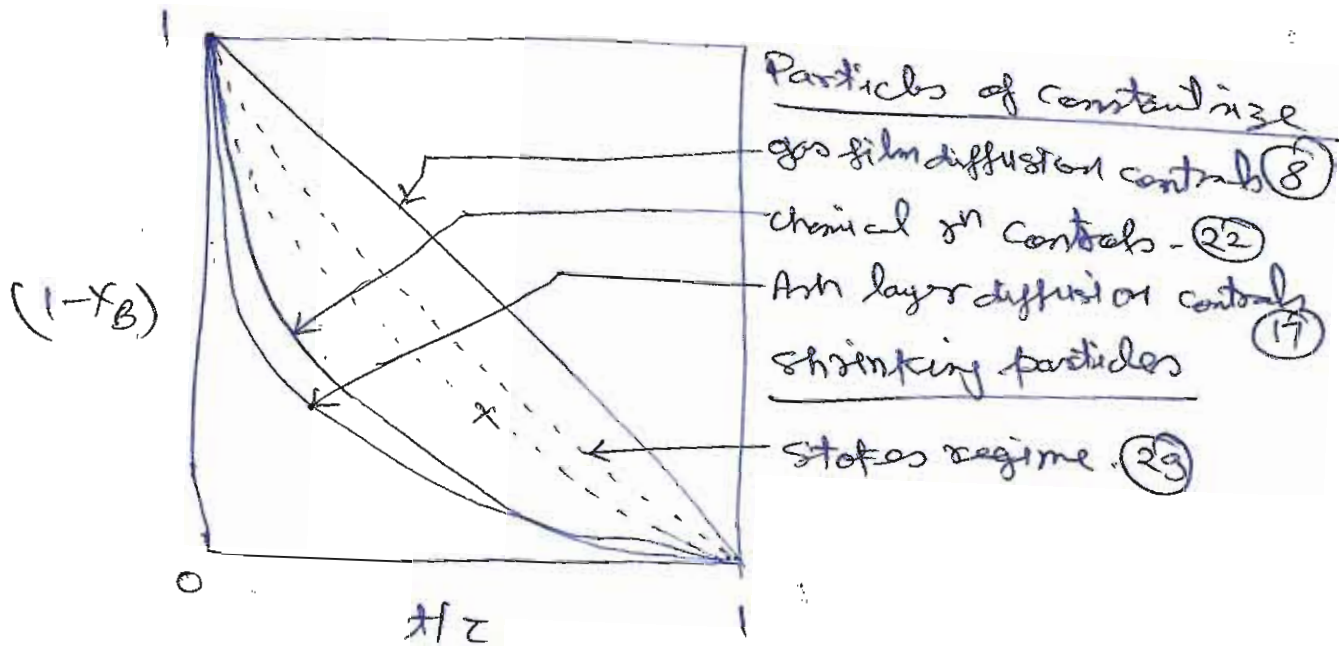 1
Particles of constant size
gas film diffusion controls (8)
chemical rn controls - (22)
Ash layer diffusion controls
(17)
(1-XB)
shrinking particles
x
Stokes regime. (23)
0
t/τ
1